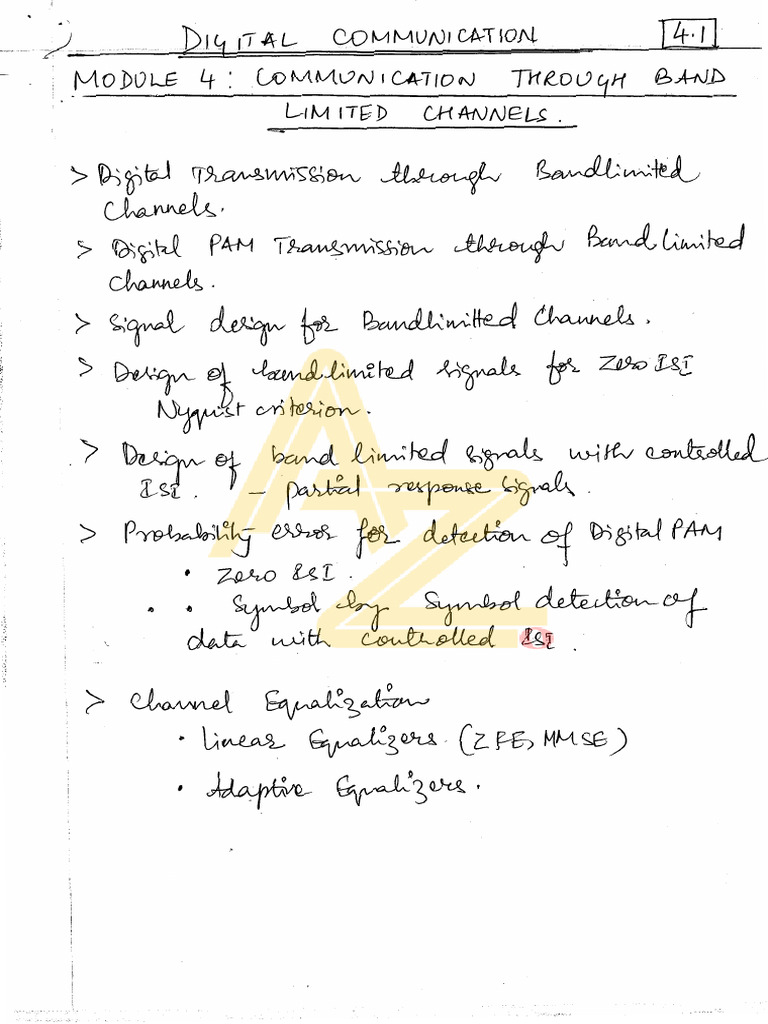 DIGITAL COMMUNICATION 4.1
MODULE 4: COMMUNICATION THROUGH BAND
LIMITED CHANNELS.
> Digital Transmission through Bandlimited
Channels.
> Digital PAM Transmission through Bandlimited
Channels.
> Signal design for Bandlimitted Channels.
> Design of bandlimited signals for Zero ISI
Nyquist criterion.
> Design of band limited signals with controlled
ISI. – partial response signals.
> Probability error for detection of Digital PAM
• Zero ISI.
• • Symbol by Symbol detection of
data with controlled ISI.
> Channel Equalization
• Linear Equalizers. (ZFE, MMSE)
• Adaptive Equalizers.
AZ